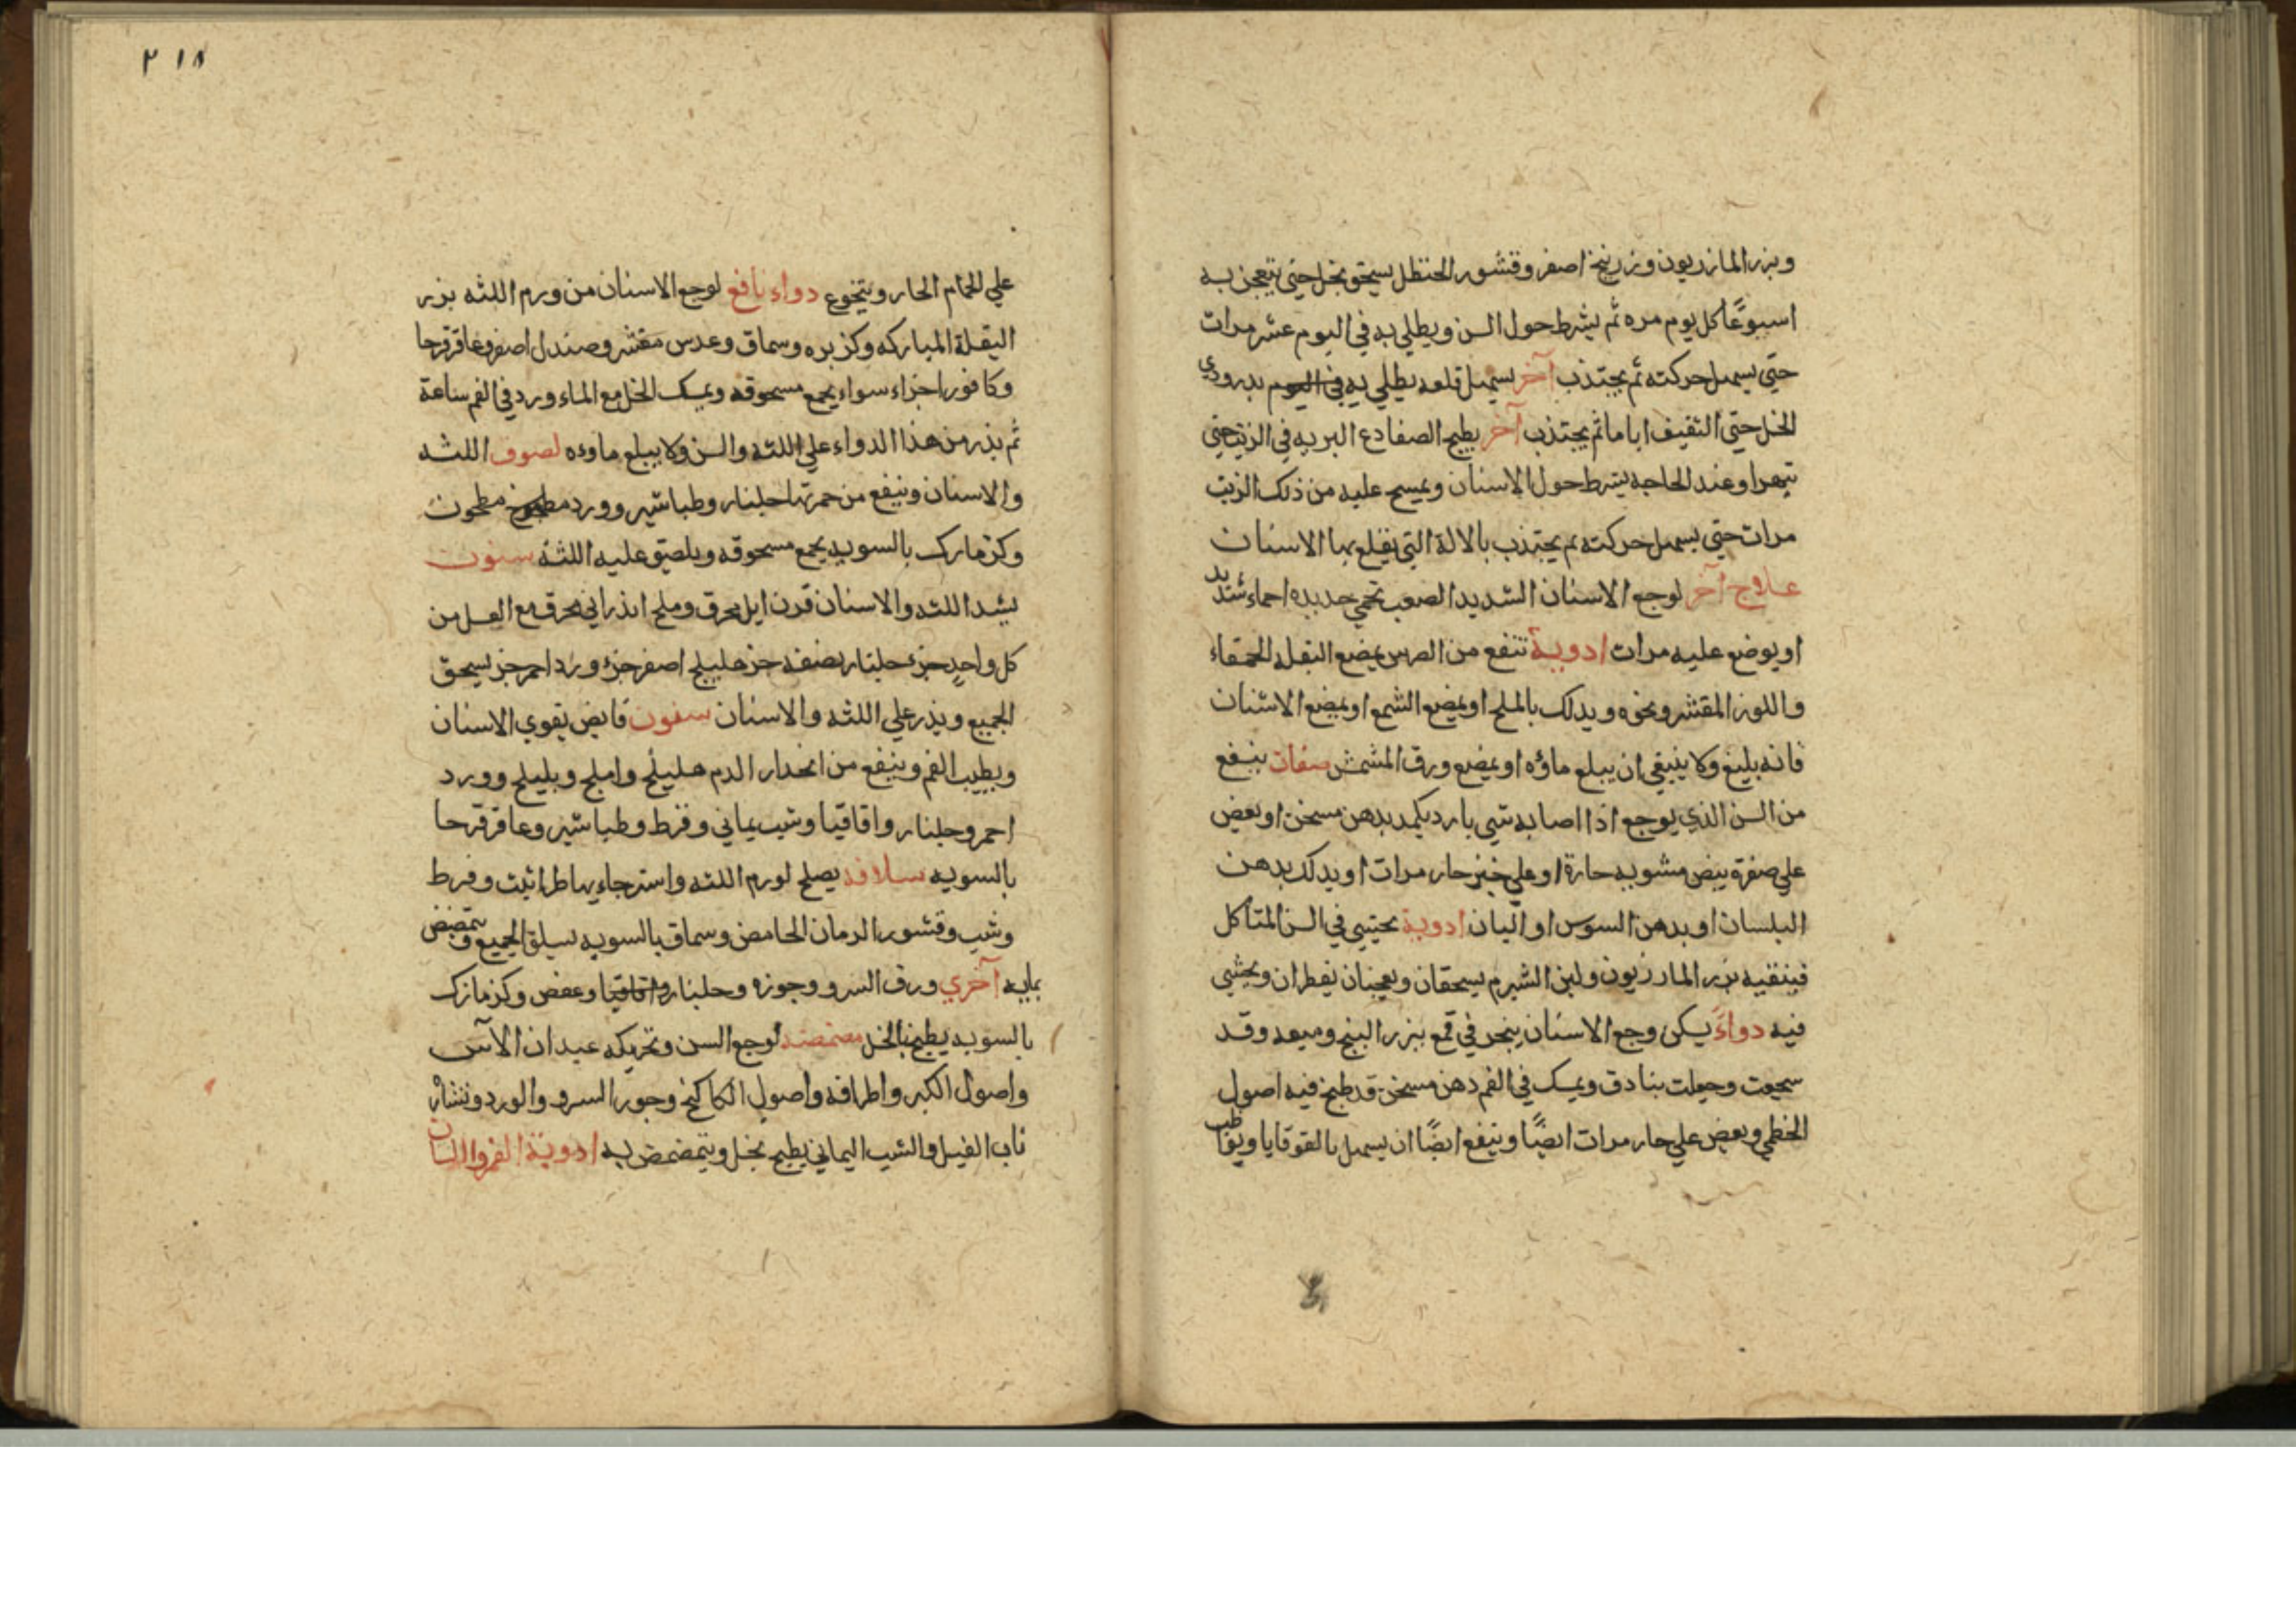 وبزر المازريون وزرنيخ اصفر وقشور الحنظل يسحق بخل حتى يتعجن به
اسبوعًا كل يوم مره ثم يشرط حول السن ويطلي به في اليوم عشر مرات
حتي يسهل حركته ثم يجتذب آخر يسهل قلعه يطلي به في اليوم بدردي
الخل حتي الثقيف اياما ثم يجتذب آخر يطبخ الضفادع البريه في الزيت حتي
تتهرا وعند الحاجه يشرط حول الاسنان ويمسح عليه من ذلك الزيت
مرات حتي يسهل حركته ثم يجتذب بالالة التي يقلع بها الاسنان
علاج آخر لوجع الاسنان الشديد الصعب تحمي حديده احماء شديد
او يوضع عليه مرات ادوية تنفع من الضرس يمضع البقله الحمقاء
واللوز المقشر ونحوه ويدلك بالملح او يمضع الشمع او يمضع الاشنان
فانه بليغ ولا ينبغي ان يبلع ماؤه او يمضع ورق المشمش صفات ينفع
من السن الذي يوجع اذا اصابه شي بارد يكمد بدهن مسخن او يعض
علي صفرة بيض مشويه حارة او علي خبز حار مرات او يدلك بدهن
البلسان او بدهن السوس او البان ادوية يحتشي في السن المتاكل
فينقيه بزر المازريون ولبن الشبرم يسحقان ويعجنان بقطران ويحشي
فيه دواءَ يسكن وجع الاسنان يبخر في قمع ببزر البنج وميعه وقد
سحقت وجعلت بنادق ويمسك في الفم دهن مسخن قد طبخ فيه اصول
الخطمي ويعض علي حار مرات ايضًا وينفع ايضًا ان يسهل بالقوقايا ويواظب
٢١٨
علي الحمام الحار ويتجوع دواء نافع لوجع الاسنان من ورم اللثه بزر
البقلة المباركه وكزبره وسماق وعدس مقشر وصندل اصفر وعاقرقرحا
وكافور اجزاء سواء يجمع مسحوقه ويمسك الخل مع الماء ورد في الفم ساعة
ثم يذر من هذا الدواء علي اللثه والسن ولا يبلع ماوءه لصوف اللثه
والاسنان وينفع من حمرتها جلنار وطباشير وورد مطبوخ مطحون
وكزمازك بالسويه يجمع مسحوقه ويلصق عليه اللثه سنون
يشد اللثه والاسنان قرن ايل محرق وملح انذراني محرق مع العسل من
كل واحدٍ جزء جلنار نصف جز هليلج اصفر جزء ورد احمر جز يسحق
الجميع ويذر علي اللثه والاسنان سفون قابض يقوي الاسنان
ويطيب الفم وينفع من انحدار الدم هليلج واملج وبليلج وورد
احمر وجلنار واقاقيا وشب يماني وقرط وطباشير وعاقرقرحا
بالسويه سلافه يصلح لورم اللثه واسترخايها طراثيث وقرط
وشب وقشور الرمان الحامض وسماق بالسويه يسلق الجميع ويتمضمض
بمايه آخري ورق السرو وجوزه وجلنار واقاقيا وعفص وكزمازك
بالسويه يطبخ بالخل مضمضه لوجع السن وتحريكه عيدان الآس
واصول الكبر واطرافه واصول الكاكنج وجوز السرو والورد ونشارْ
ناب الفيل والشب اليماني يطبخ بخل ويتمضمض به ادوية الفم واللسان